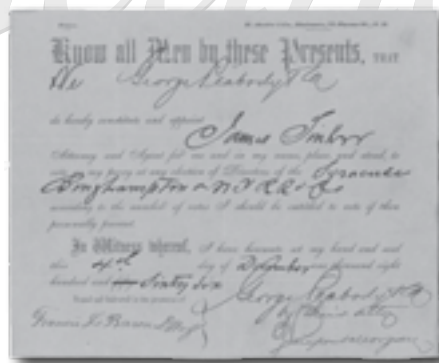 Know all Men by these Presents, THAT
We George Peabody & Co
do hereby constitute and appoint
James Tinker
Attorney and Agent for me and in my name, place and stead, to
vote as my proxy at any election of Directors of the Syracuse
Binghampton & N Y R R Co
according to the number of votes I should be entitled to vote if then
personally present.
In Witness whereof, I have hereunto set my hand and seal
this 4th day of one thousand eight
hundred and Sixty Six
Sealed and delivered in the presence of
George Peabody & Co
by their atty
J Pierpont Morgan